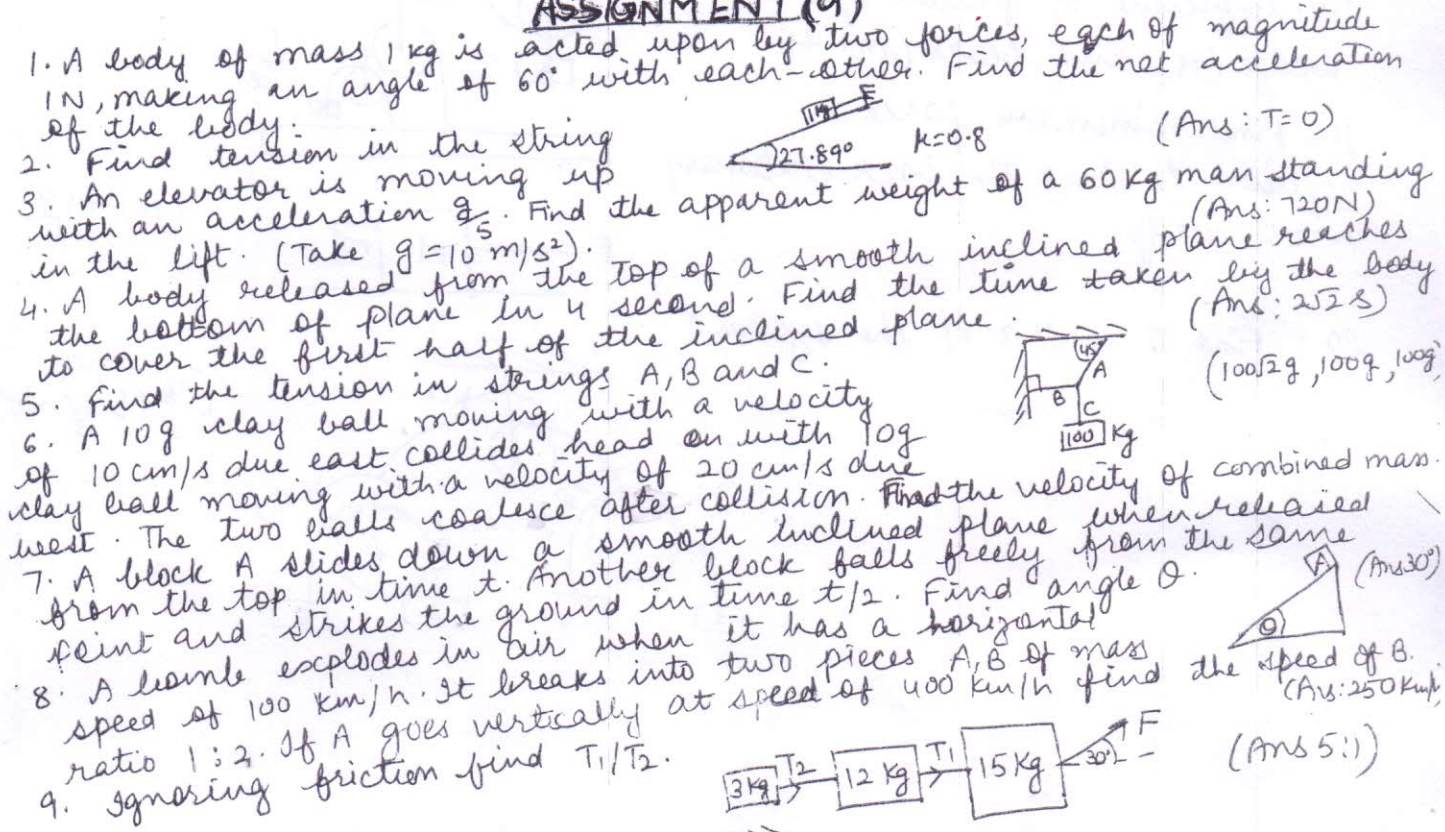 ASSIGNMENT (9)
1. A body of mass 1 kg is acted upon by two forces, each of magnitude
1N, making an angle of 60° with each-other. Find the net acceleration
of the body.
2. Find tension in the string
27.89° μ=0.8 (Ans: T=0)
3. An elevator is moving up
with an acceleration g/5. Find the apparent weight of a 60 kg man standing
in the lift. (Take g=10 m/s²). (Ans: 720N)
4. A body released from the top of a smooth inclined plane reaches
the bottom of plane in 4 second. Find the time taken by the body
to cover the first half of the inclined plane. (Ans: 2√2 s)
5. Find the tension in strings A, B and C.
45° A B C 100 kg (100√2g, 100g, 100g)
6. A 10g clay ball moving with a velocity
of 10 cm/s due east collides head on with 10g
clay ball moving with a velocity of 20 cm/s due
west. The two balls coalesce after collision. Find the velocity of combined mass.
7. A block A slides down a smooth inclined plane when released
from the top in time t. Another block falls freely from the same
point and strikes the ground in time t/2. Find angle θ.
A θ (Ans 30°)
8. A bomb explodes in air when it has a horizontal
speed of 100 km/h. It breaks into two pieces A, B of mass
ratio 1:2. If A goes vertically at speed of 400 km/h find the speed of B.
(Ans: 250 km/h)
9. Ignoring friction find T₁/T₂.
3 kg T₂ 12 kg T₁ 15 kg 30° F (Ans 5:1)